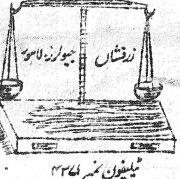 زرفشاں جیولرز لاہور
ٹیلیفون نمبر